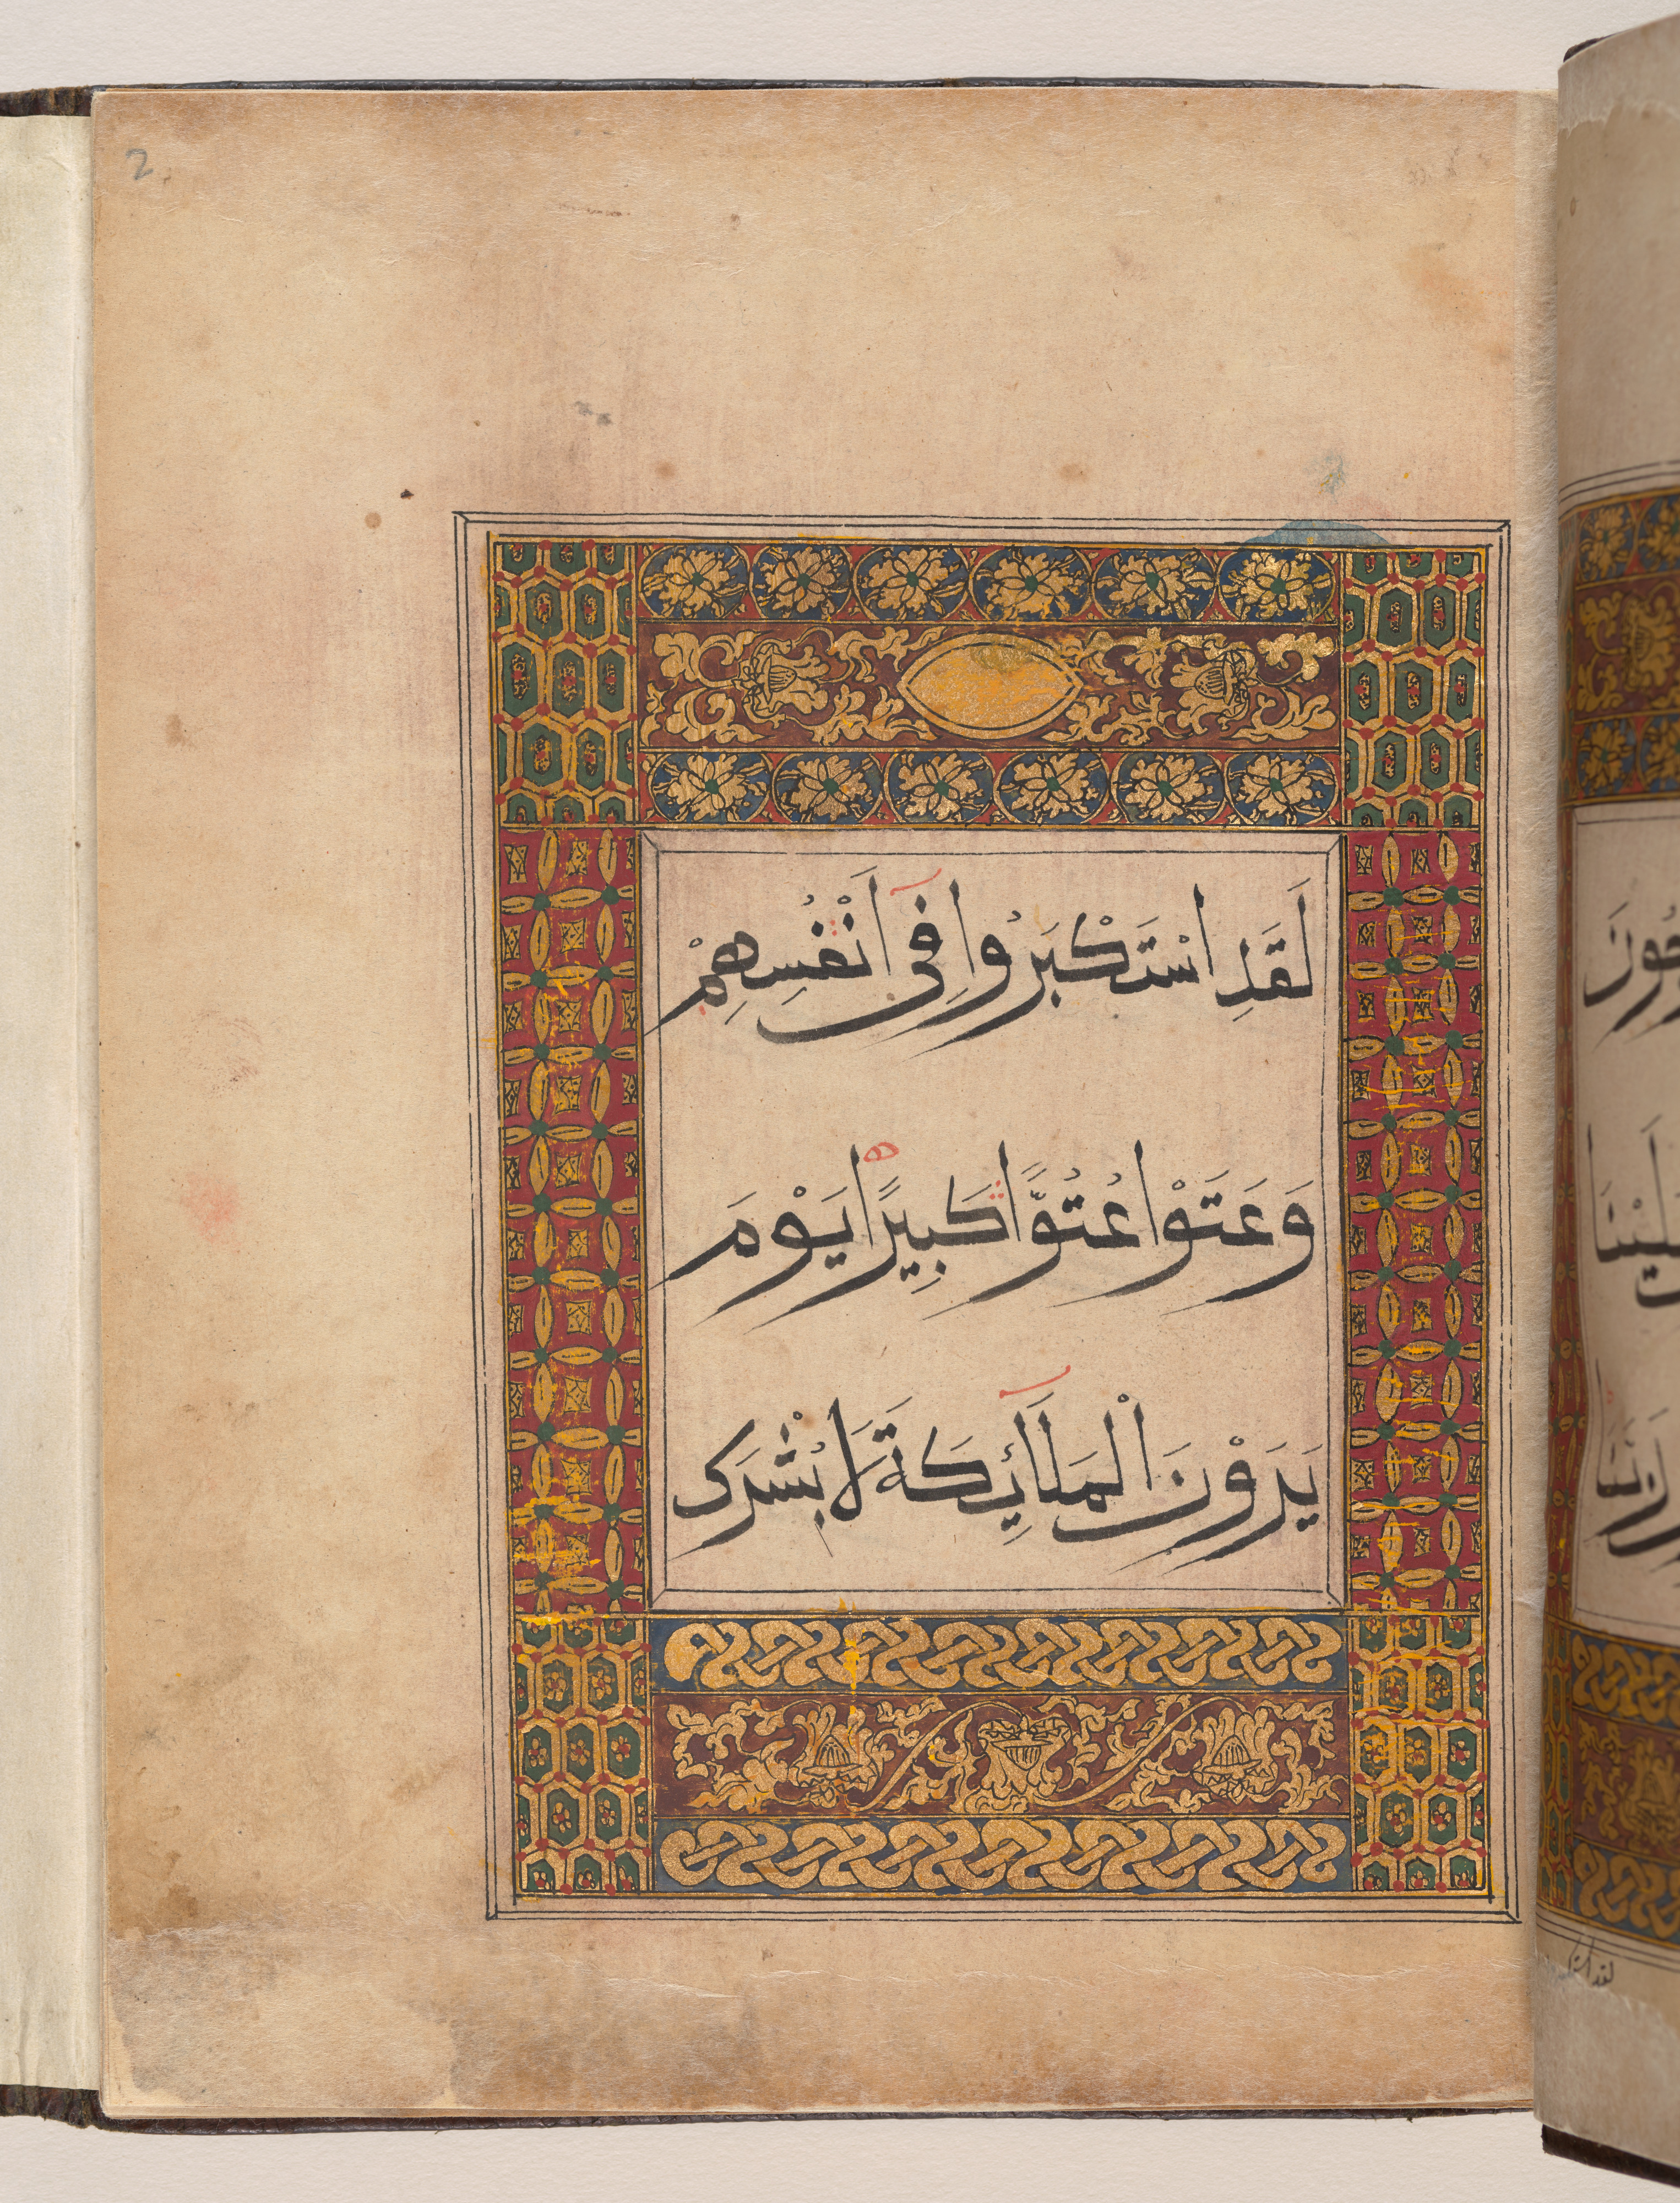 لَقَدِ اسْتَكْبَرُوا فِي أَنْفُسِهِمْ
وَعَتَوْا عُتُوًّا كَبِيرًا يَوْمَ
يَرَوْنَ الْمَلَآئِكَةَ لَا بُشْرَى
2